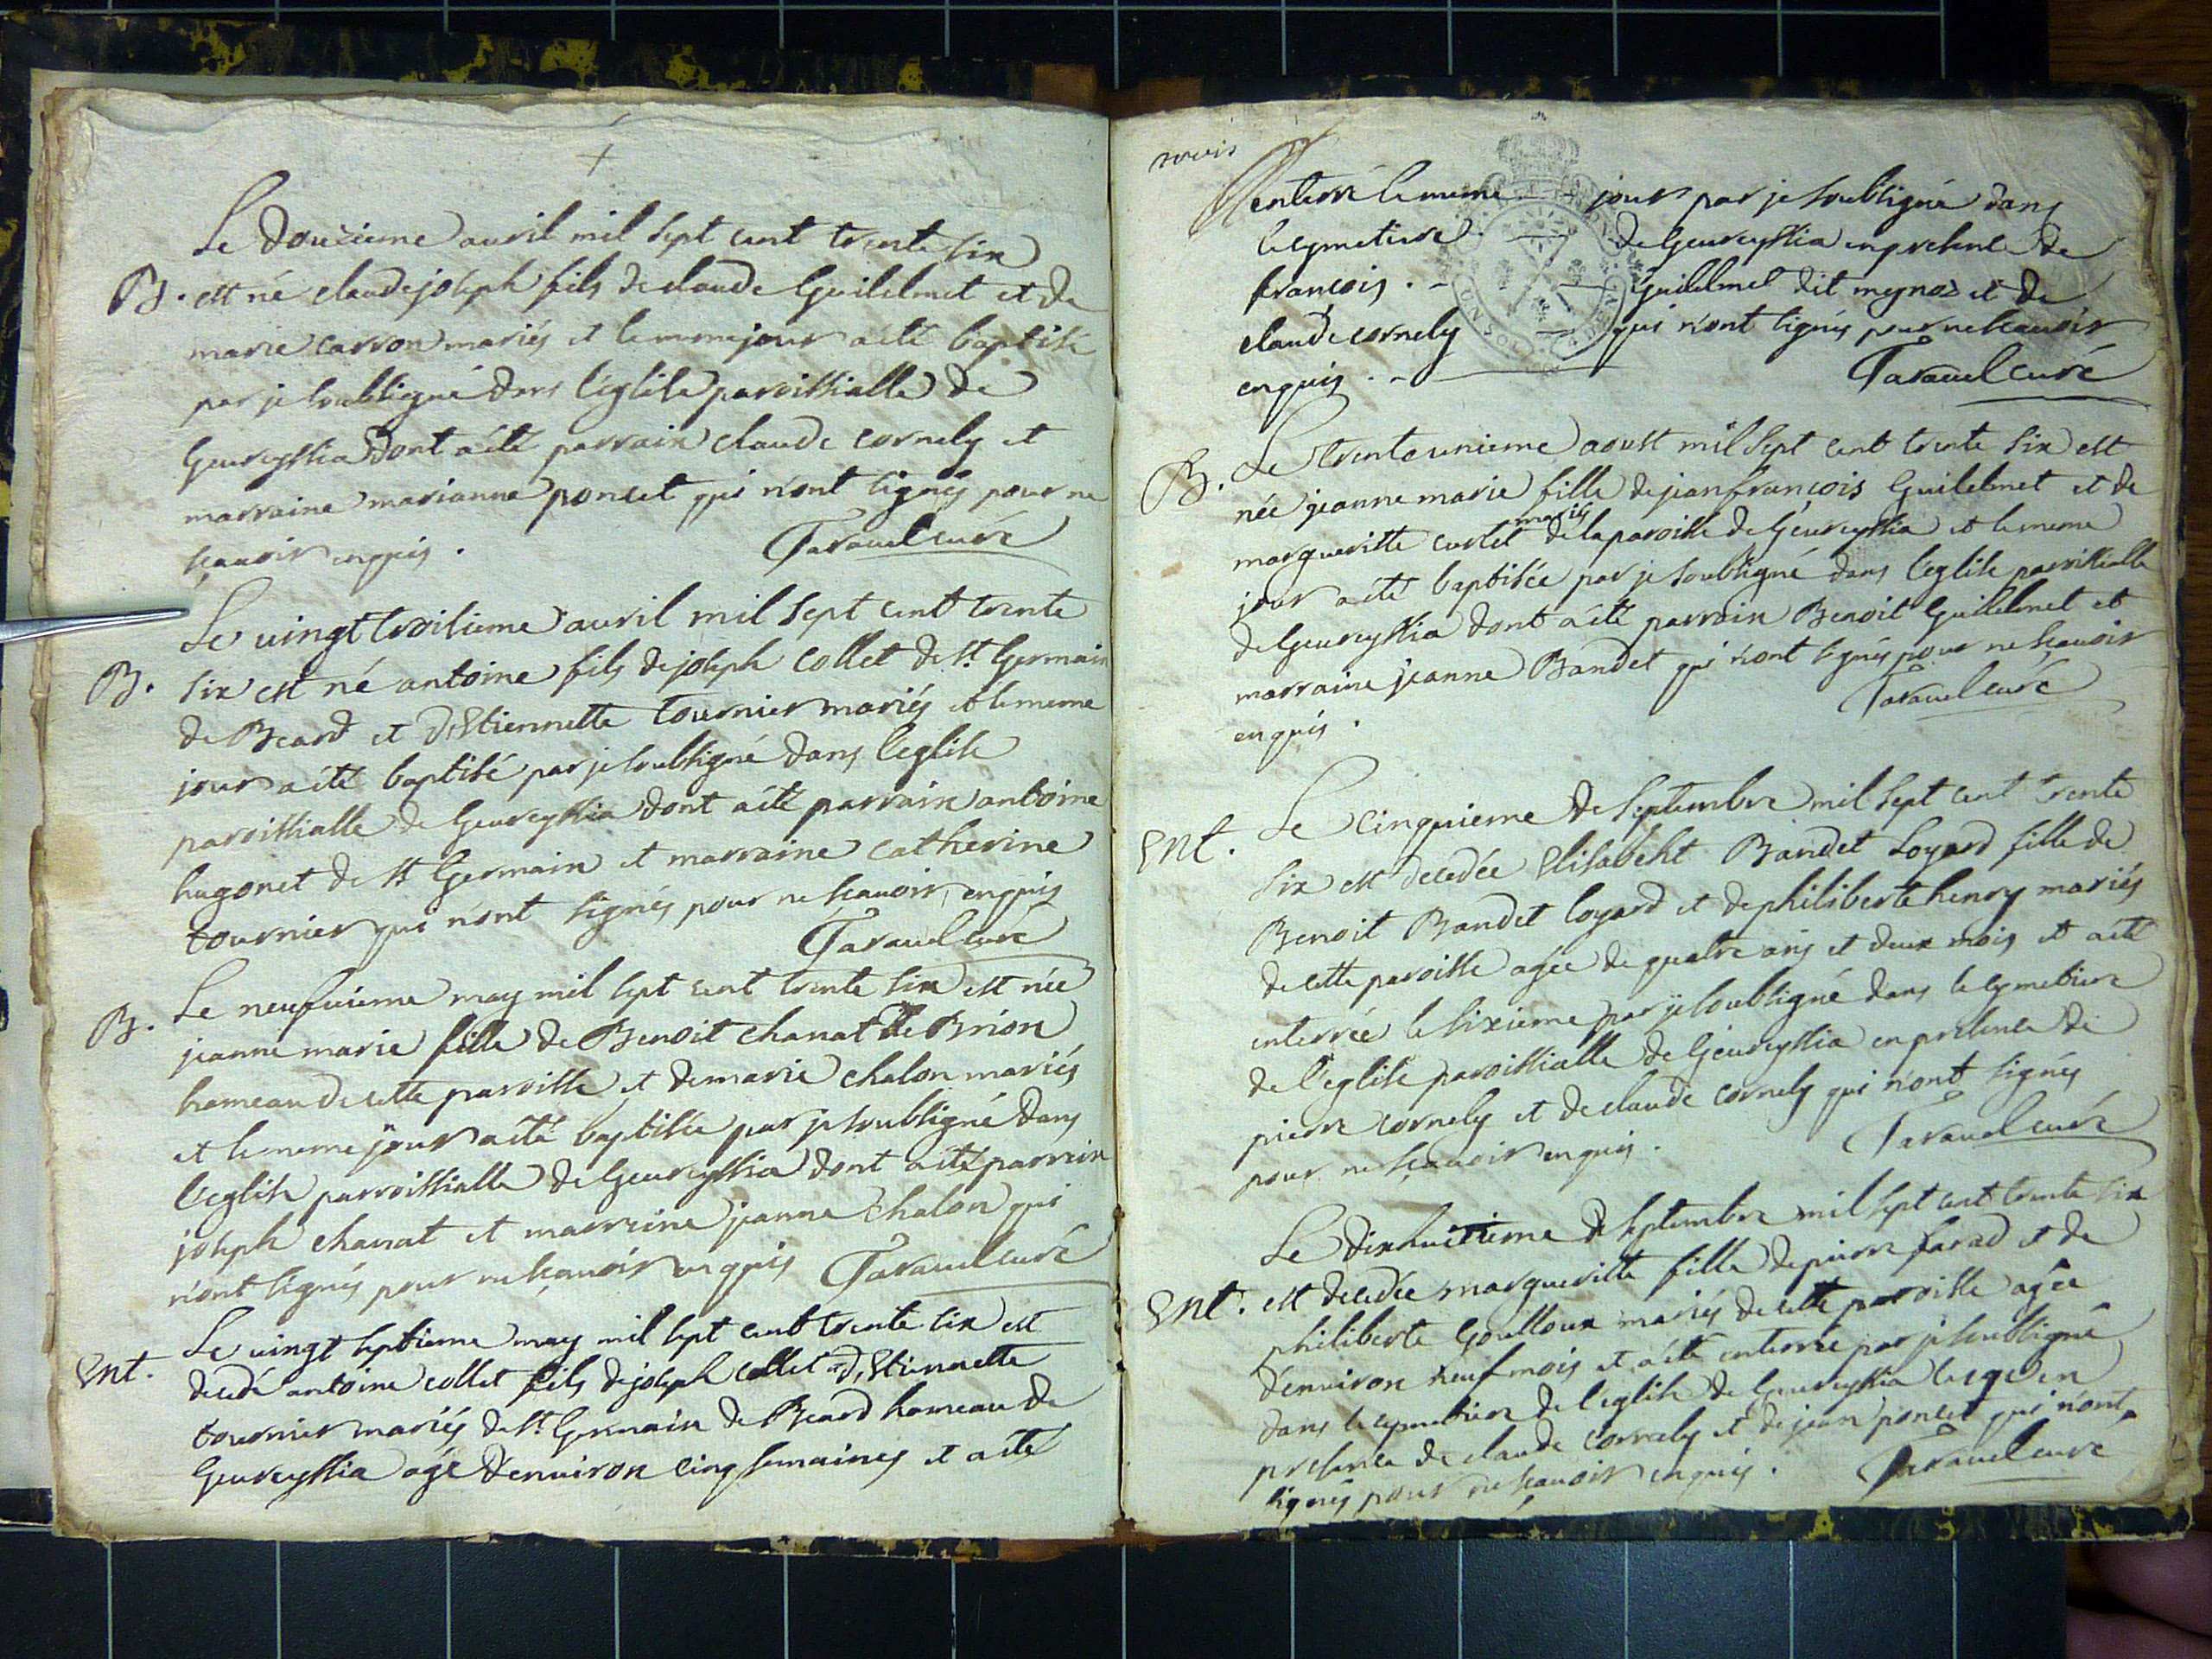 Le douzieme auril mil sept cent trente six
B. est né claude joseph fils de claude Guilelmet et de
marie carron mariés et le meme jour a été baptisé
par je soubsigné dans l'eglise paroissialle de
Geureyssia dont a été parrain claude cornely et
marraine marianne poncet qui n'ont signés pour ne
sçauoir enquis. Tarauel curé
Le uingt troisieme auril mil sept cent trente
B. six est né antoine fils de joseph collet de St Germain
de Beard et d'Etiennette tournier mariés et le meme
jour a été baptisé par je soubsigné dans l'eglise
paroissialle de Geureyssia dont a été parrain antoine
hugonet de St Germain et marraine catherine
tournier qui n'ont signés pour ne sçauoir enquis
Tarauel curé
B. Le neufuieme may mil sept cent trente six est née
jeanne marie fille de Benoit chanat de Brion
hameau de cette paroisse et de marie chalon mariés
et le meme jour a été baptisée par je soubsigné dans
l'eglise parroissialle de Geureyssia dont a été parrain
joseph chanat et marraine jeanne chalon qui
n'ont signés pour ne sçauoir enquis Tarauel curé
Le uingt septieme may mil sept cent trente six est
Ent. decedé antoine collet fils de joseph collet et d'Etiennette
tournier mariés de St Germain de Beard hameau de
Geureyssia agé d'enuiron cinq semaines et a été
enterré le meme jour par je soubsigné dans
le cymetiere de Geureyssia en presence de
françois Guilelmet dit meynoz et de
claude cornely qui n'ont signés pour ne sçauoir
enquis. Tarauel curé
B. Le trente unieme aoust mil sept cent trente six est
née jeanne marie fille de jean françois Guilelmet et de
mariés
margueritte curlet de la paroisse de Geureyssia et le meme
jour a été baptisée par je soubsigné dans l'eglise paroissialle
de Geureyssia dont a été parrain Benoit Guilelmet et
marraine jeanne Bandet qui n'ont signés pour ne sçauoir
enquis. Tarauel curé
Le cinquieme de septembre mil sept cent trente
Ent. six est decedée Elisabeht Bandet Loyard fille de
Benoit Bandet loyard et de philiberte henry mariés
de cette paroisse agée de quatre ans et deux mois et a été
enterrée le sixieme par je soubsigné dans le cymetiere
de l'eglise paroissialle de Geureyssia en presence de
pierre cornely et de claude cornely qui n'ont signés
pour ne sçauoir enquis. Tarauel curé
Le dixhuitieme de septembre mil sept cent trente six
Ent. est decedée margueritte fille de pierre farad et de
philiberte Goulloux mariés de cette paroisse agée
d'enuiron neuf mois et a été enterrée par je soubsigné
dans le cymetiere de l'eglise de Geureyssia en
presence de claude cornely et de jean poncet qui n'ont
signés pour ne sçauoir enquis. Tarauel curé